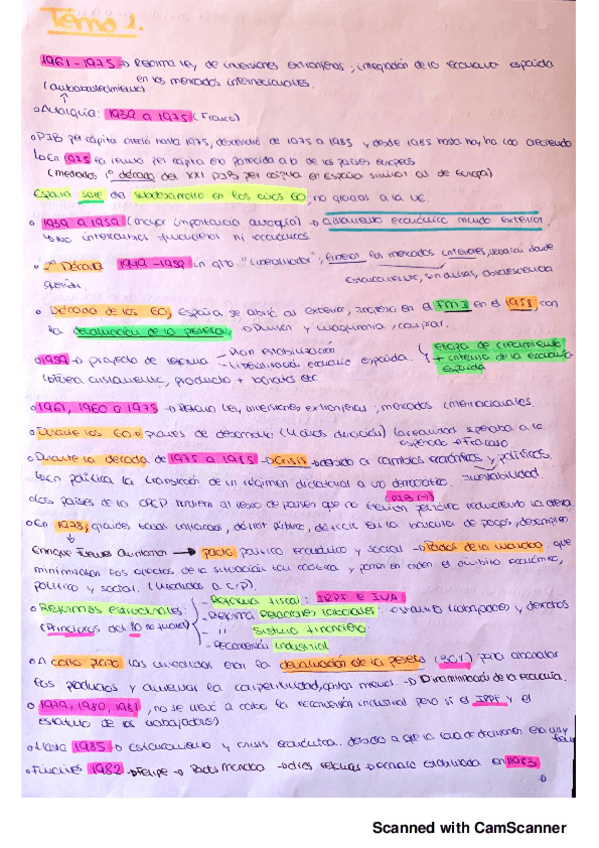 Tema 1.
1961-1975 → Reforma ley de inversiones extranjeras, integración de la economía española
(autoabastecimiento) en los mercados internacionales.
Autarquía: 1939 a 1975 (Franco)
PIB per cápita creció hasta 1975, descendió de 1975 a 1985 y desde 1985 hasta hoy, ha ido creciendo
En 1975 la renta per cápita era parecida a la de los países europeos
(mediados 1º década del XXI PIB per cápita en España similar al de Europa)
España sale del subdesarrollo en los años 60, no gracias a la UE.
1939 a 1959 (mayor importancia autarquía) → aislamiento económico mundo exterior.
No intercambios financieros ni económicos.
2ª Década 1949-1959 un giro "liberalizador", los mercados interiores, donde
estancamiento, sin divisas, obsolescencia
Década de los 60, España se abrió al exterior, ingresó en el FMI en el 1958, con
la devaluación de la peseta, → y maquinaria, comprar.
1959 → proyecto de reforma - Plan estabilización
- Liberalización economía española.
etapa de crecimiento
+ de la economía española
aislamiento, producto + baratos etc
1961, 1960 a 1975 → Reforma Ley inversiones extranjeras, mercados internacionales.
Durante los 60 → planes de desarrollo (4 años duración) la realidad superaba a lo
esperado → Fracaso
Durante la década de 1975 a 1985 → Crisis → debido a cambios económicos y políticos.
En política la transición de un régimen dictatorial a uno democrático. Inestabilidad.
PIB (-1)
Los países de la OPEP al resto de países que no tenían petróleo reduciendo la oferta
En 1978, grandes tasas inflación, déficit público, déficit en la balanza de pagos, desempleo
Enrique Fuentes Quintana → pacto político económico y social → Pactos de la Moncloa que
minimizaban los efectos de la situación y ponían en orden el ámbito económico,
político y social. (Medidas a C/P).
Reformas estructurales: - Reforma fiscal: IRPF e IVA
(Principios del 80 no antes) - Reforma Relaciones laborales: estatuto trabajadores y derechos
- " Sistema financiero
- Reconversión industrial
A corto plazo las medidas eran la devaluación de la peseta (20%) para abaratar
los productos y aumentar la competitividad, → Dinamización de la economía.
1979, 1980, 1981, no se llevó a cabo la reconversión industrial pero sí el IRPF y el
estatuto de los trabajadores
Hasta 1985 → estancamiento y crisis económica. debido a que la toma de decisiones era muy
Finales 1982 → Felipe → Pacto Moncloa → otras reformas → economía estabilizada en 1983
Scanned with CamScanner